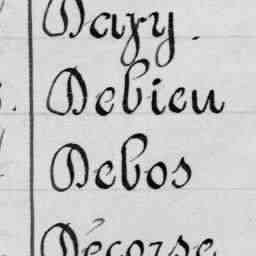 Dazy.
Debieu
Debos
Décorse